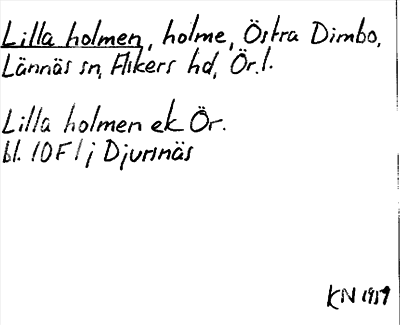 Lilla holmen, holme, Östra Dimbo,
Lännäs sn, Askers hd, Ör. l.
Lilla holmen ek Ör.
bl. 10F1j Djursnäs
KN 1959